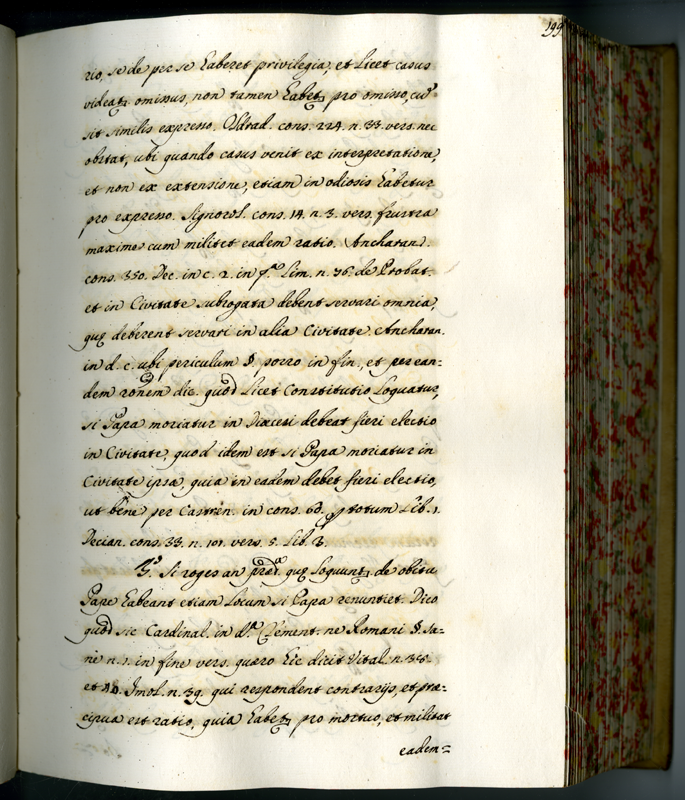 199
rio, se de per se haberet privilegia, et licet casus
videatr omissus, non tamen habetr pro omisso, cu
sit similis expresso. Oldrad. cons. 224. n. 33. vers. nec
obstat, ubi quando casus venit ex interpretatione,
et non ex extensione, etiam in odiosis habetur
pro expresso. Signorol. cons. 14. n. 3. vers. frustra
maxime cum militet eadem ratio. Ancharan.
cons. 350. Dec. in c. 2. in f.º lim. n. 36. de Probat.
et in Civitate subrogata debent servari omnia,
quę deberent servari in alia Civitate. Ancharan.
in d. c. ubi periculum §. porro in fin., et per ean:
dem ronem dic. quod licet Constitutio loquatur,
si Papa moriatur in Diœcesi debeat fieri electio
in Civitate, quod idem est si Papa moriatur in
Civitate ipsa, quia in eadem debet fieri electio,
ut bene per Castren. in cons. 60. p totum Lib. 1.
Decian. cons. 33. n. 101. vers. 5. Lib. 3.
Si roges an quę loquuntr de obitu
Papę habeant etiam locum si Papa renuntiet. Dico
quod sic Cardinal. in d.ª Clement. ne Romani §. Sa=
nè n. 1. in fine vers. quæro hic dicit Vital. n. 355.
et Imol. n. 39. qui respondent contrarijs, et præ=
cipua est ratio, quia habetr pro mortuo, et militat
eadem=